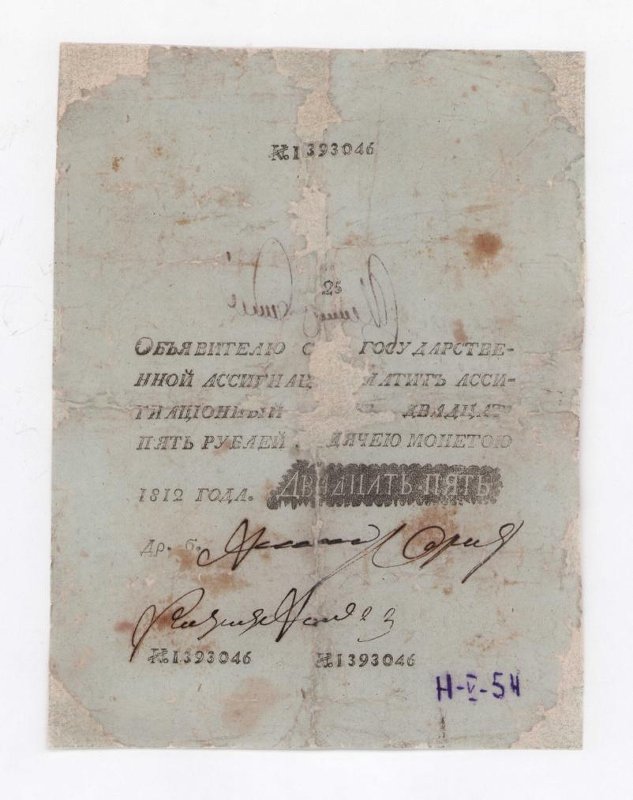 № 1393046
25
ОБЪЯВИТЕЛЮ С ГОСУДАРСТВЕ-
ННОЙ АССИГНАЦ АТИТЪ АССИ-
ГНАЦІОННЫЙ ДВАДЦАТ
ПЯТЬ РУБЛЕЙ ДЯЧЕЮ МОНЕТОЮ
1812 ГОДА. ДВАДЦАТЬ ПЯТЬ
Др. б.
№ 1393046 № 1393046
Н-V-54